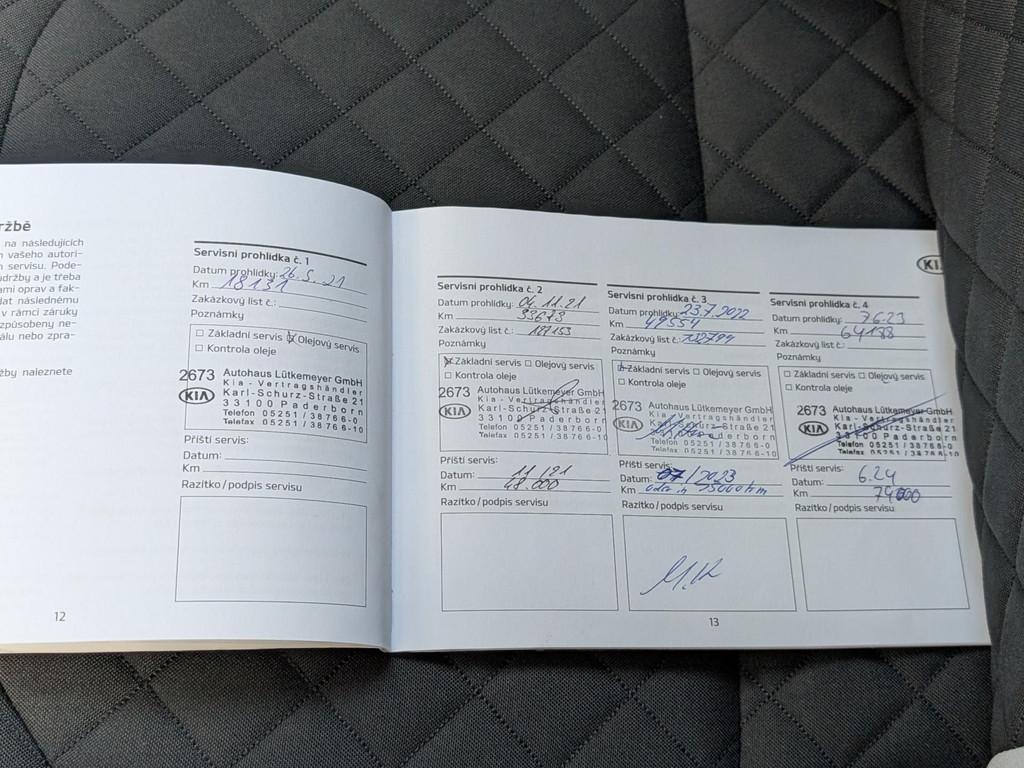 ržbě
na následujících
vašeho autori-
servisu. Pode-
údržby a je třeba
ami oprav a fak-
dat následnému
v rámci záruky
způsobeny ne-
álu nebo zpra-
žby naleznete
Servisní prohlídka č. 1
Datum prohlídky: 26.5.21
Km 18131
Zakázkový list č.:
Poznámky
☐ Základní servis ☒ Olejový servis
☐ Kontrola oleje
2673 Autohaus Lütkemeyer GmbH
KIA Kia - Vertragshändler
Karl-Schurz-Straße 21
33100 Paderborn
Telefon 05251/38766-0
Telefax 05251/38766-10
Příští servis:
Datum:
Km
Razítko/podpis servisu
12
KI
Servisní prohlídka č. 2
Datum prohlídky: 04.11.21
Km 33673
Zakázkový list č.: 127153
Poznámky
☒ Základní servis ☐ Olejový servis
☐ Kontrola oleje
2673 Autohaus Lütkemeyer GmbH
KIA Kia - Vertragshändler
Karl-Schurz-Straße 21
33100 Paderborn
Telefon 05251/38766-0
Telefax 05251/38766-10
Příští servis:
Datum: 11/21
Km 48.000
Razítko/podpis servisu
Servisní prohlídka č. 3
Datum prohlídky: 23.7.2022
Km 49554
Zakázkový list č.: 132799
Poznámky
☒ Základní servis ☐ Olejový servis
☐ Kontrola oleje
2673 Autohaus Lütkemeyer GmbH
KIA Kia - Vertragshändler
Karl-Schurz-Straße 21
Paderborn
Telefon 05251/38766-0
Telefax 05251/38766-10
Příští servis:
Datum: 07/2023
Km oder n 15000km
Razítko/podpis servisu
Servisní prohlídka č. 4
Datum prohlídky: 7.6.23
Km 64188
Zakázkový list č.:
Poznámky
☐ Základní servis ☐ Olejový servis
☐ Kontrola oleje
2673 Autohaus Lütkemeyer GmbH
KIA Kia - Vertragshändler
Karl-Schurz-Straße 21
33100 Paderborn
Telefon 05251/38766-0
Telefax 05251/38766-10
Příští servis:
Datum: 6.24
Km 79000
Razítko/podpis servisu
13